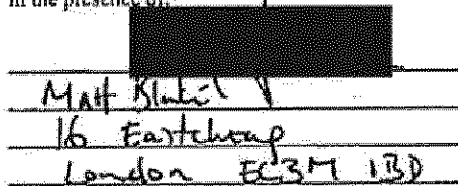 in the presence of:
Matt
16 Eastcheap
London EC3M 1BD